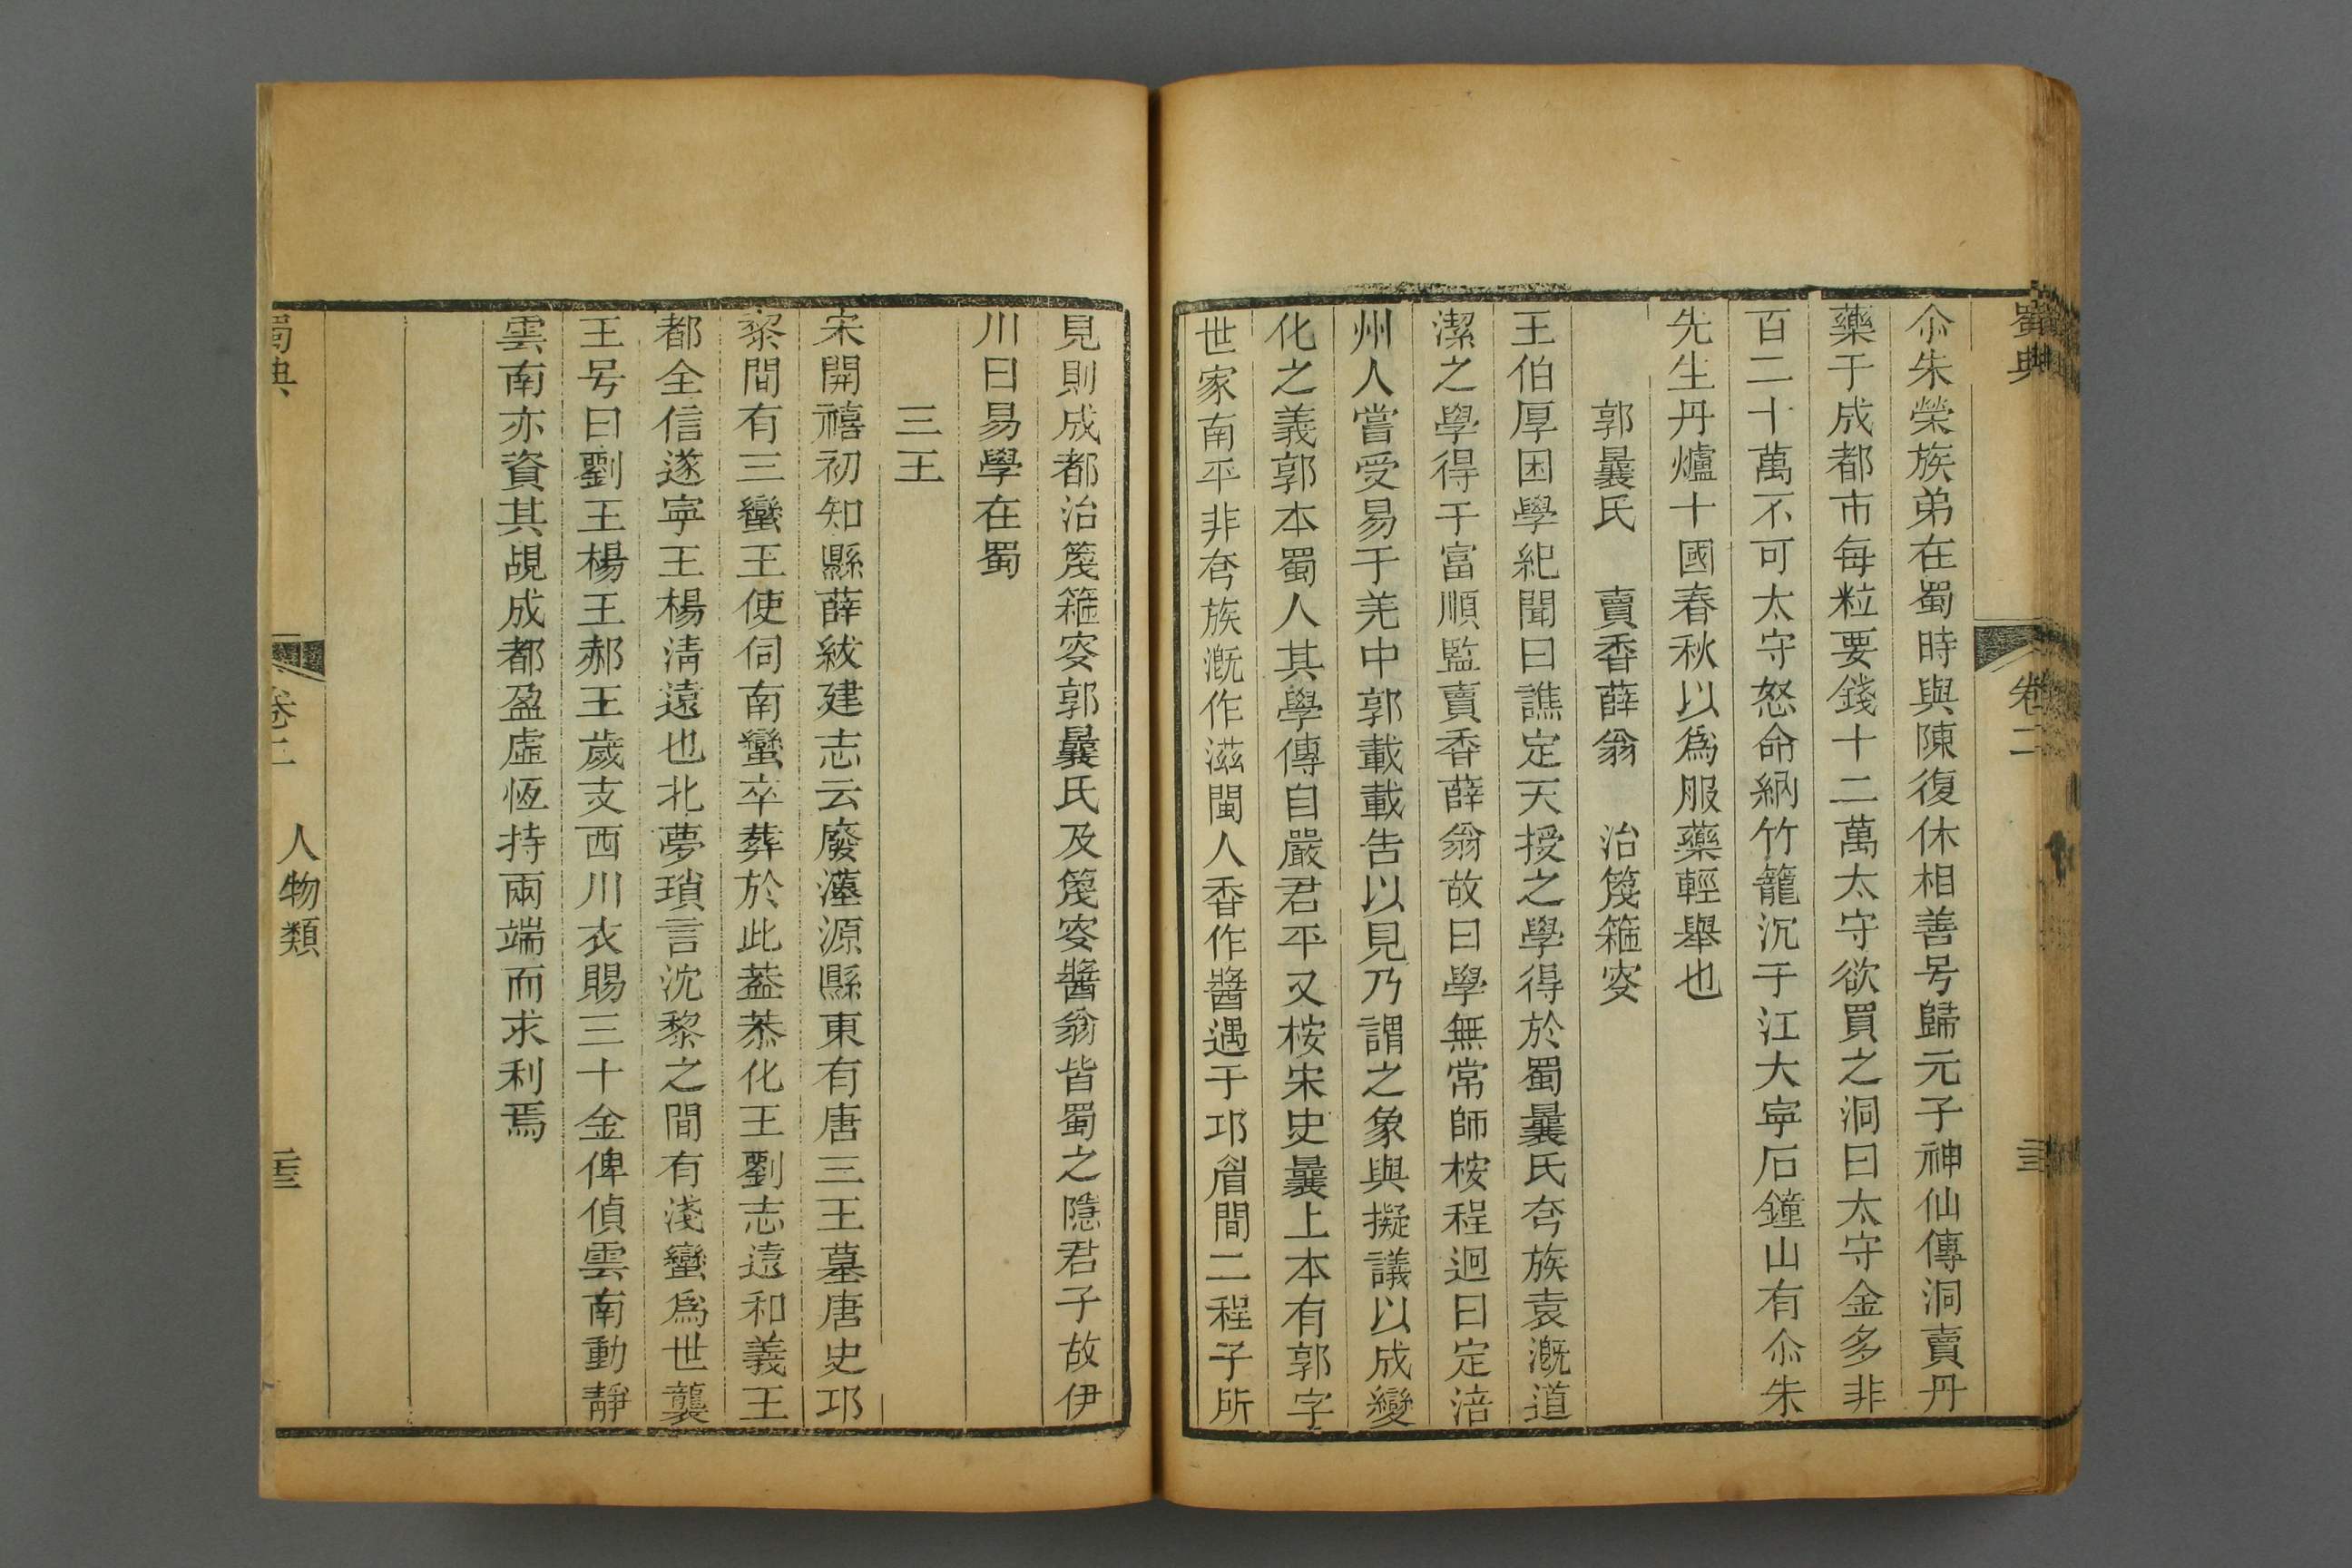 蜀典
卷二
尒朱榮族弟在蜀時與陳復休相善号歸元子神仙傳洞賣丹
藥于成都市每粒要錢十二萬太守欲買之洞曰太守金多非
百二十萬不可太守怒命納竹籠沉于江大寜石鐘山有尒朱
先生丹爐十國春秋以爲服藥輕舉也
郭曩氏　賣香薛翁　治篾箍叜
王伯厚困學紀聞曰譙定天授之學得於蜀曩氏夸族袁漑道
潔之學得于富順監賣香薛翁故曰學無常師桉程迥曰定涪
州人嘗受易于羌中郭載載告以見乃謂之象與擬議以成變
化之義郭本蜀人其學傳自嚴君平又桉宋史曩上本有郭字
世家南平非夸族漑作滋閩人香作醬遇于邛眉間二程子所
見則成都治篾箍叜郭曩氏及篾叜醬翁皆蜀之隱君子故伊
川曰易學在蜀
三王
宋開禧初知縣薛紱建志云廢漢源縣東有唐三王墓唐史邛
黎間有三蠻王使伺南蠻卒葬於此葢恭化王劉志遠和義王
都全信遂寜王楊淸遠也北夢瑣言沈黎之間有淺蠻爲世襲
王号曰劉王楊王郝王歲支西川衣賜三十金俾偵雲南動靜
雲南亦資其覘成都盈虛恆持兩端而求利焉
蜀典
卷二
人物類